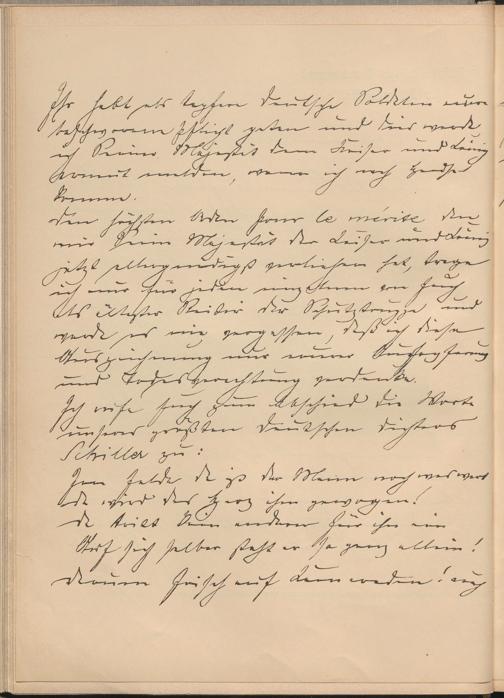 Ihr habt als tapfere deutsche Soldaten eure
beschworene Pflicht getan und dies werde
ich Seiner Majestät dem Kaiser und König
melden, wenn ich nach
komme.
Den höchsten Orden pour le mérite den
mir Seine Majestät der Kaiser und König
jetzt allergnädigst verliehen hat, trage
ich nur für jeden einzelnen von Euch
als ältester Reiter der Schutztruppe und
werde es nie vergessen, daß ich diese
Auszeichnung nur eurer Aufopferung
und Todesverachtung verdanke.
Ich rufe Euch zum Abschied die Worte
unseres größten deutschen Dichters
Schiller zu:
Im Felde da ist der Mann noch was wert
da wird das Herz ihm gewogen!
da tritt kein anderer für ihn ein
Auf sich selber steht er da ganz allein!
Darum frisch auf Kameraden! auf